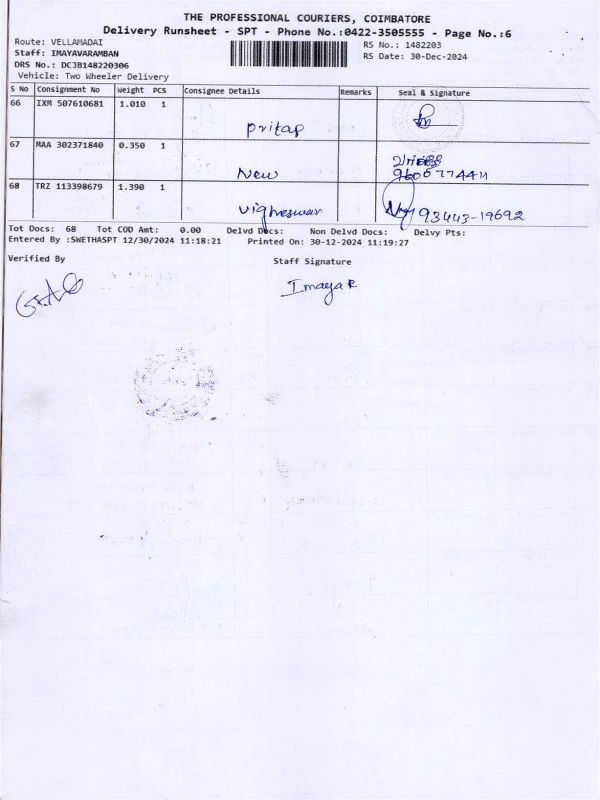 THE PROFESSIONAL COURIERS, COIMBATORE
Delivery Runsheet - SPT - Phone No.:0422-3505555 - Page No.:6
Route: VELLAMADAI
Staff: IMAYAVARAMBAN
DRS No.: DCJB148220306
Vehicle: Two Wheeler Delivery
RS No.: 1482203
RS Date: 30-Dec-2024
S No Consignment No Weight PCS Consignee Details Remarks Seal & Signature
66 IXM 507610681 1.010 1
pritap
67 MAA 302371840 0.350 1
New
68 TRZ 113398679 1.390 1
vighneswar 93443-19692
Tot Docs: 68 Tot COD Amt: 0.00 Delvd Docs: Non Delvd Docs: Delvy Pts:
Entered By :SWETHASPT 12/30/2024 11:18:21 Printed On: 30-12-2024 11:19:27
Verified By Staff Signature
Imaya R